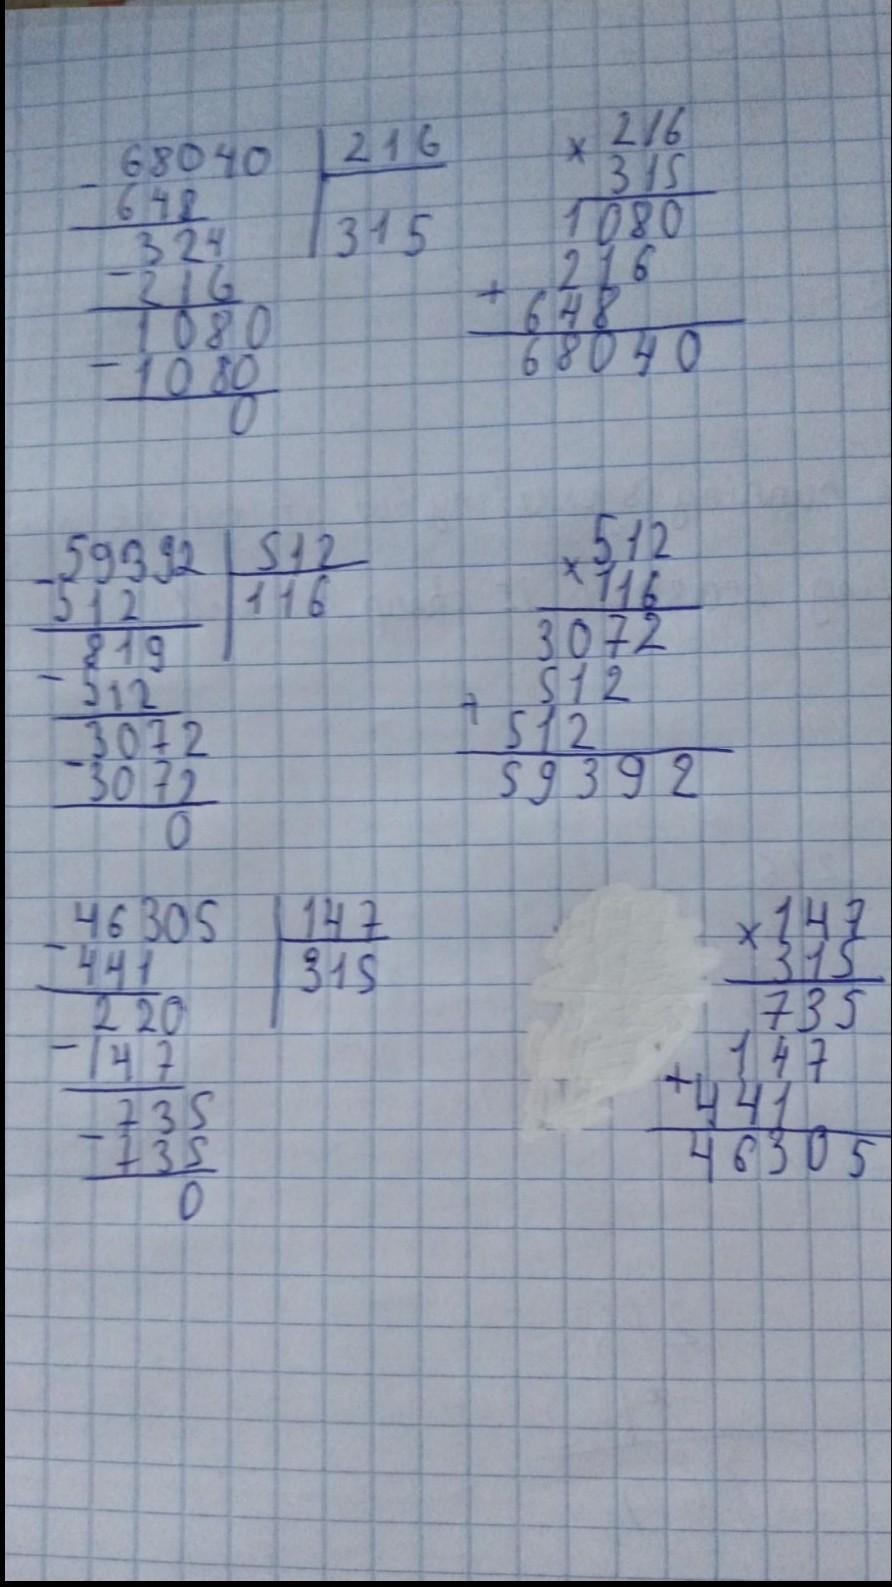 68040 | 216
- 648
315
324
- 216
1080
- 1080
0
× 216
315
1080
216
+ 648
68040
- 59392 | 512
512
116
819
- 512
3072
- 3072
0
× 512
116
3072
512
+ 512
59392
- 46305 | 147
441
315
220
- 147
735
- 735
0
× 147
315
735
147
+ 441
46305